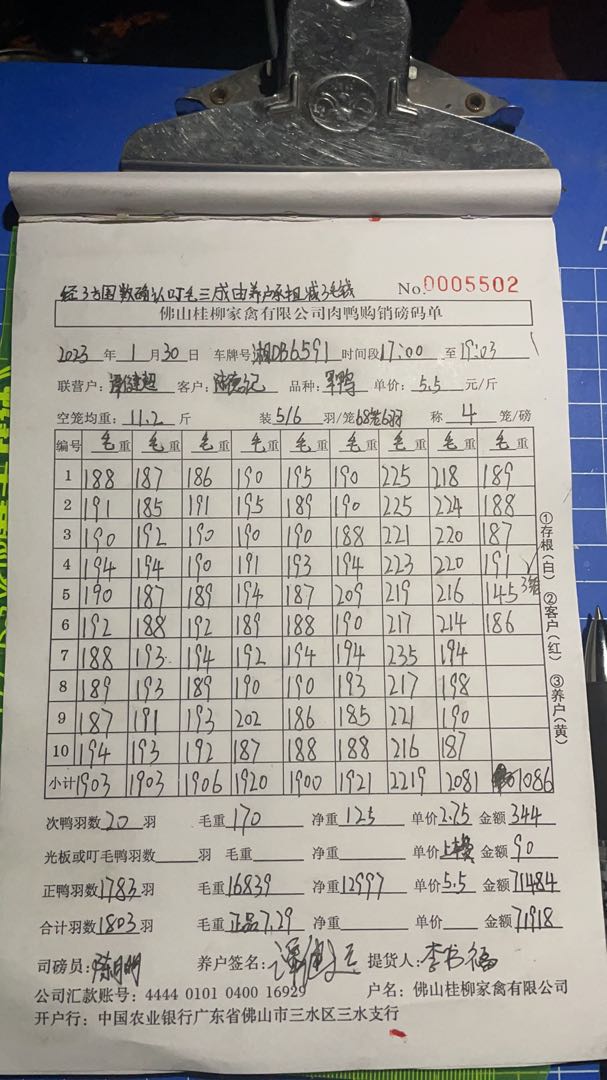 经3方国数确认叮毛三成由养户承担减3毛钱 No.0005502
佛山桂柳家禽有限公司肉鸭购销磅码单
2023 年 1 月 30 日 车牌号 湘DB6591 时间段 17:00 至 19:03
联营户: 客户: 品种: 单价: 5.5 元/斤
空笼均重: 11.2 斤 装 5/6 羽/笼 68笼6羽 称 4 笼/磅
编号 毛重 毛重 毛重 毛重 毛重 毛重 毛重 毛重 毛重
1 188 187 186 190 195 190 225 218 189
2 191 185 191 195 189 190 225 224 188
3 190 192 190 190 190 188 221 220 187
4 194 194 190 191 193 194 223 220 191
5 190 187 189 194 187 209 219 216 145 3笼
6 192 188 192 189 188 190 217 214 186
7 188 193 194 192 194 194 235 194
8 189 193 189 190 190 193 217 198
9 187 191 193 202 186 185 221 190
10 194 193 192 187 188 188 216 187
小计 1903 1903 1906 1920 1900 1921 2219 2081 1086
①存根(白) ②客户(红) ③养户(黄)
次鸭羽数 20 羽 毛重 170 净重 125 单价 2.75 金额 344
光板或叮毛鸭羽数 羽 毛重 净重 单价 金额 90
正鸭羽数 1783 羽 毛重 16839 净重 12997 单价 5.5 金额 71484
合计羽数 1803 羽 毛重 正品7.29 净重 单价 金额 71918
司磅员: 养户签名: 提货人: 李书福
公司汇款账号: 4444 0101 0400 16929 户名: 佛山桂柳家禽有限公司
开户行: 中国农业银行广东省佛山市三水区三水支行